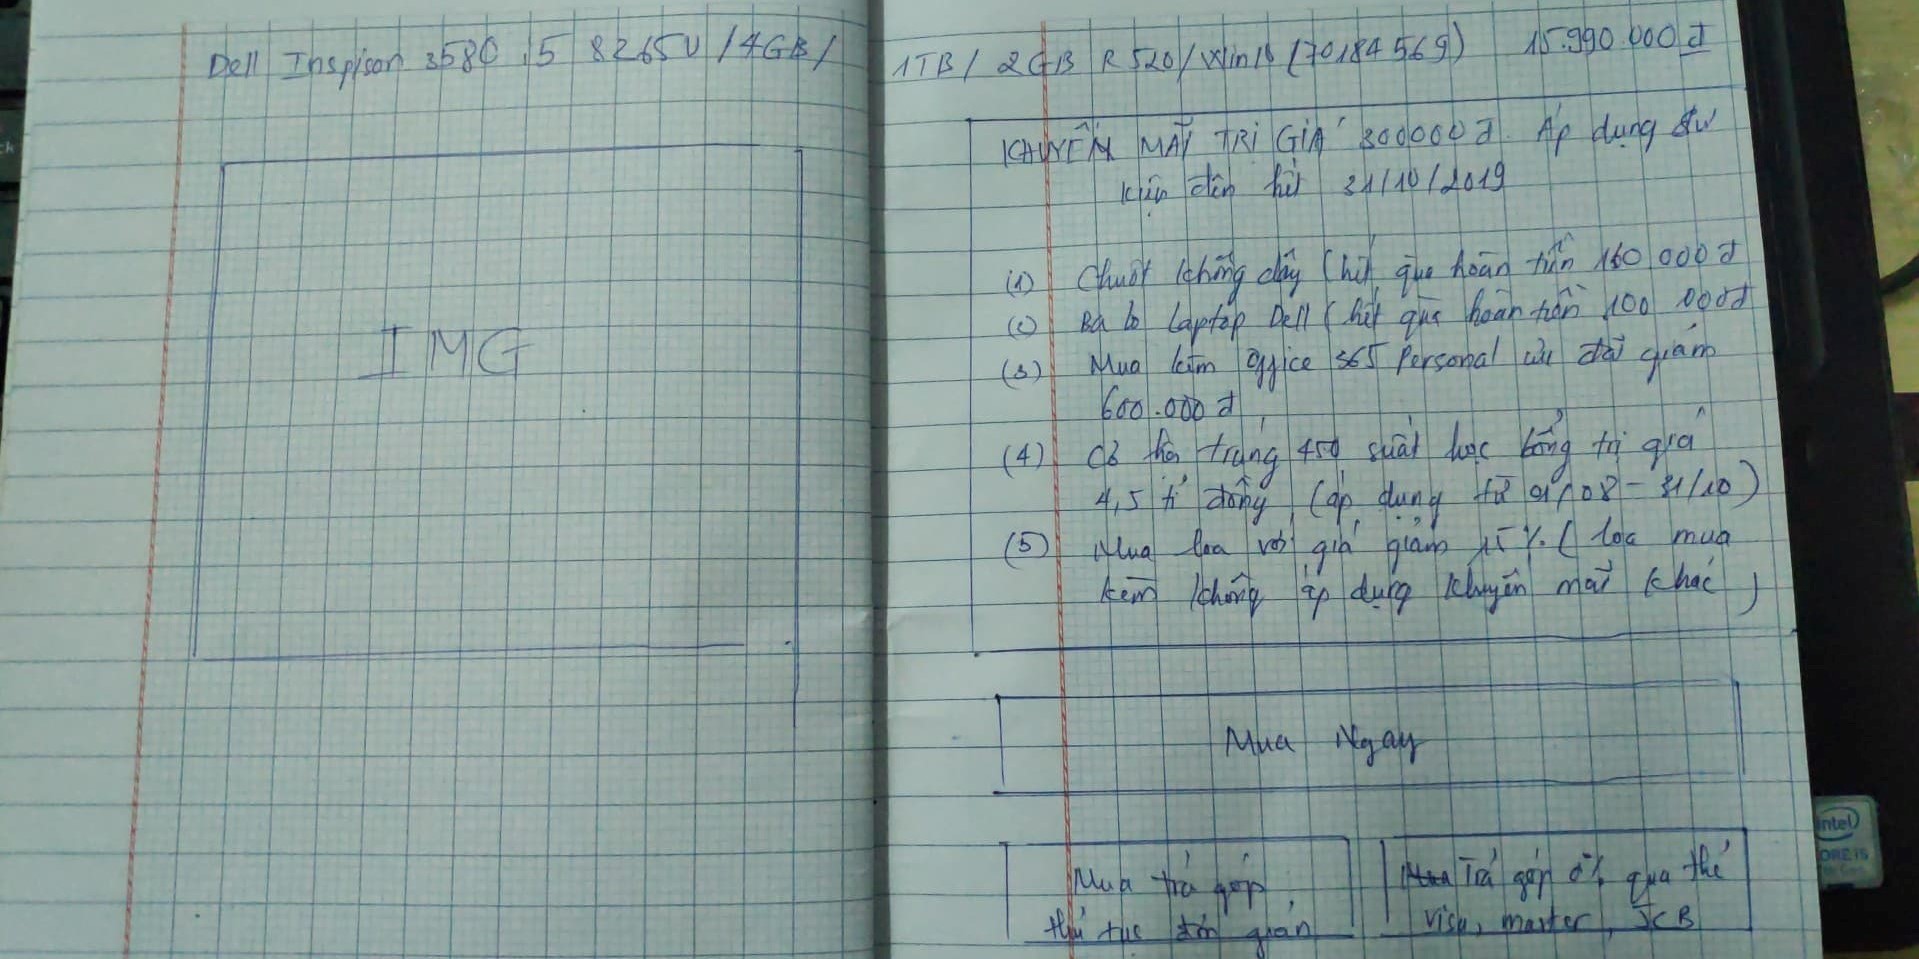 Dell Inspison 3580 i5 8265U /4GB/ 1TB/ 2GB R520/ Win10 (70184569) 15.990.000đ
IMG
KHUYẾN MÃI TRỊ GIÁ 300000đ. Áp dụng dự
kiến đến hết 31/10/2019
(1) Chuột không dây (hết quà hoàn tiền 160 000đ
(2) Ba lô laptop Dell (hết quà hoàn tiền 100 000đ
(3) Mua kèm Office 365 Personal ưu đãi giảm
600.000đ
(4) Cơ hội trúng 450 suất học bổng trị giá
4,5 tỉ đồng (áp dụng từ 01/08 - 31/10)
(5) Mua loa với giá giảm 15% (loa mua
kèm không áp dụng khuyến mãi khác)
Mua Ngay
Mua trả góp
thủ tục đơn giản
Trả góp 0% qua thẻ
visa, master, JCB
intel
CORE i5